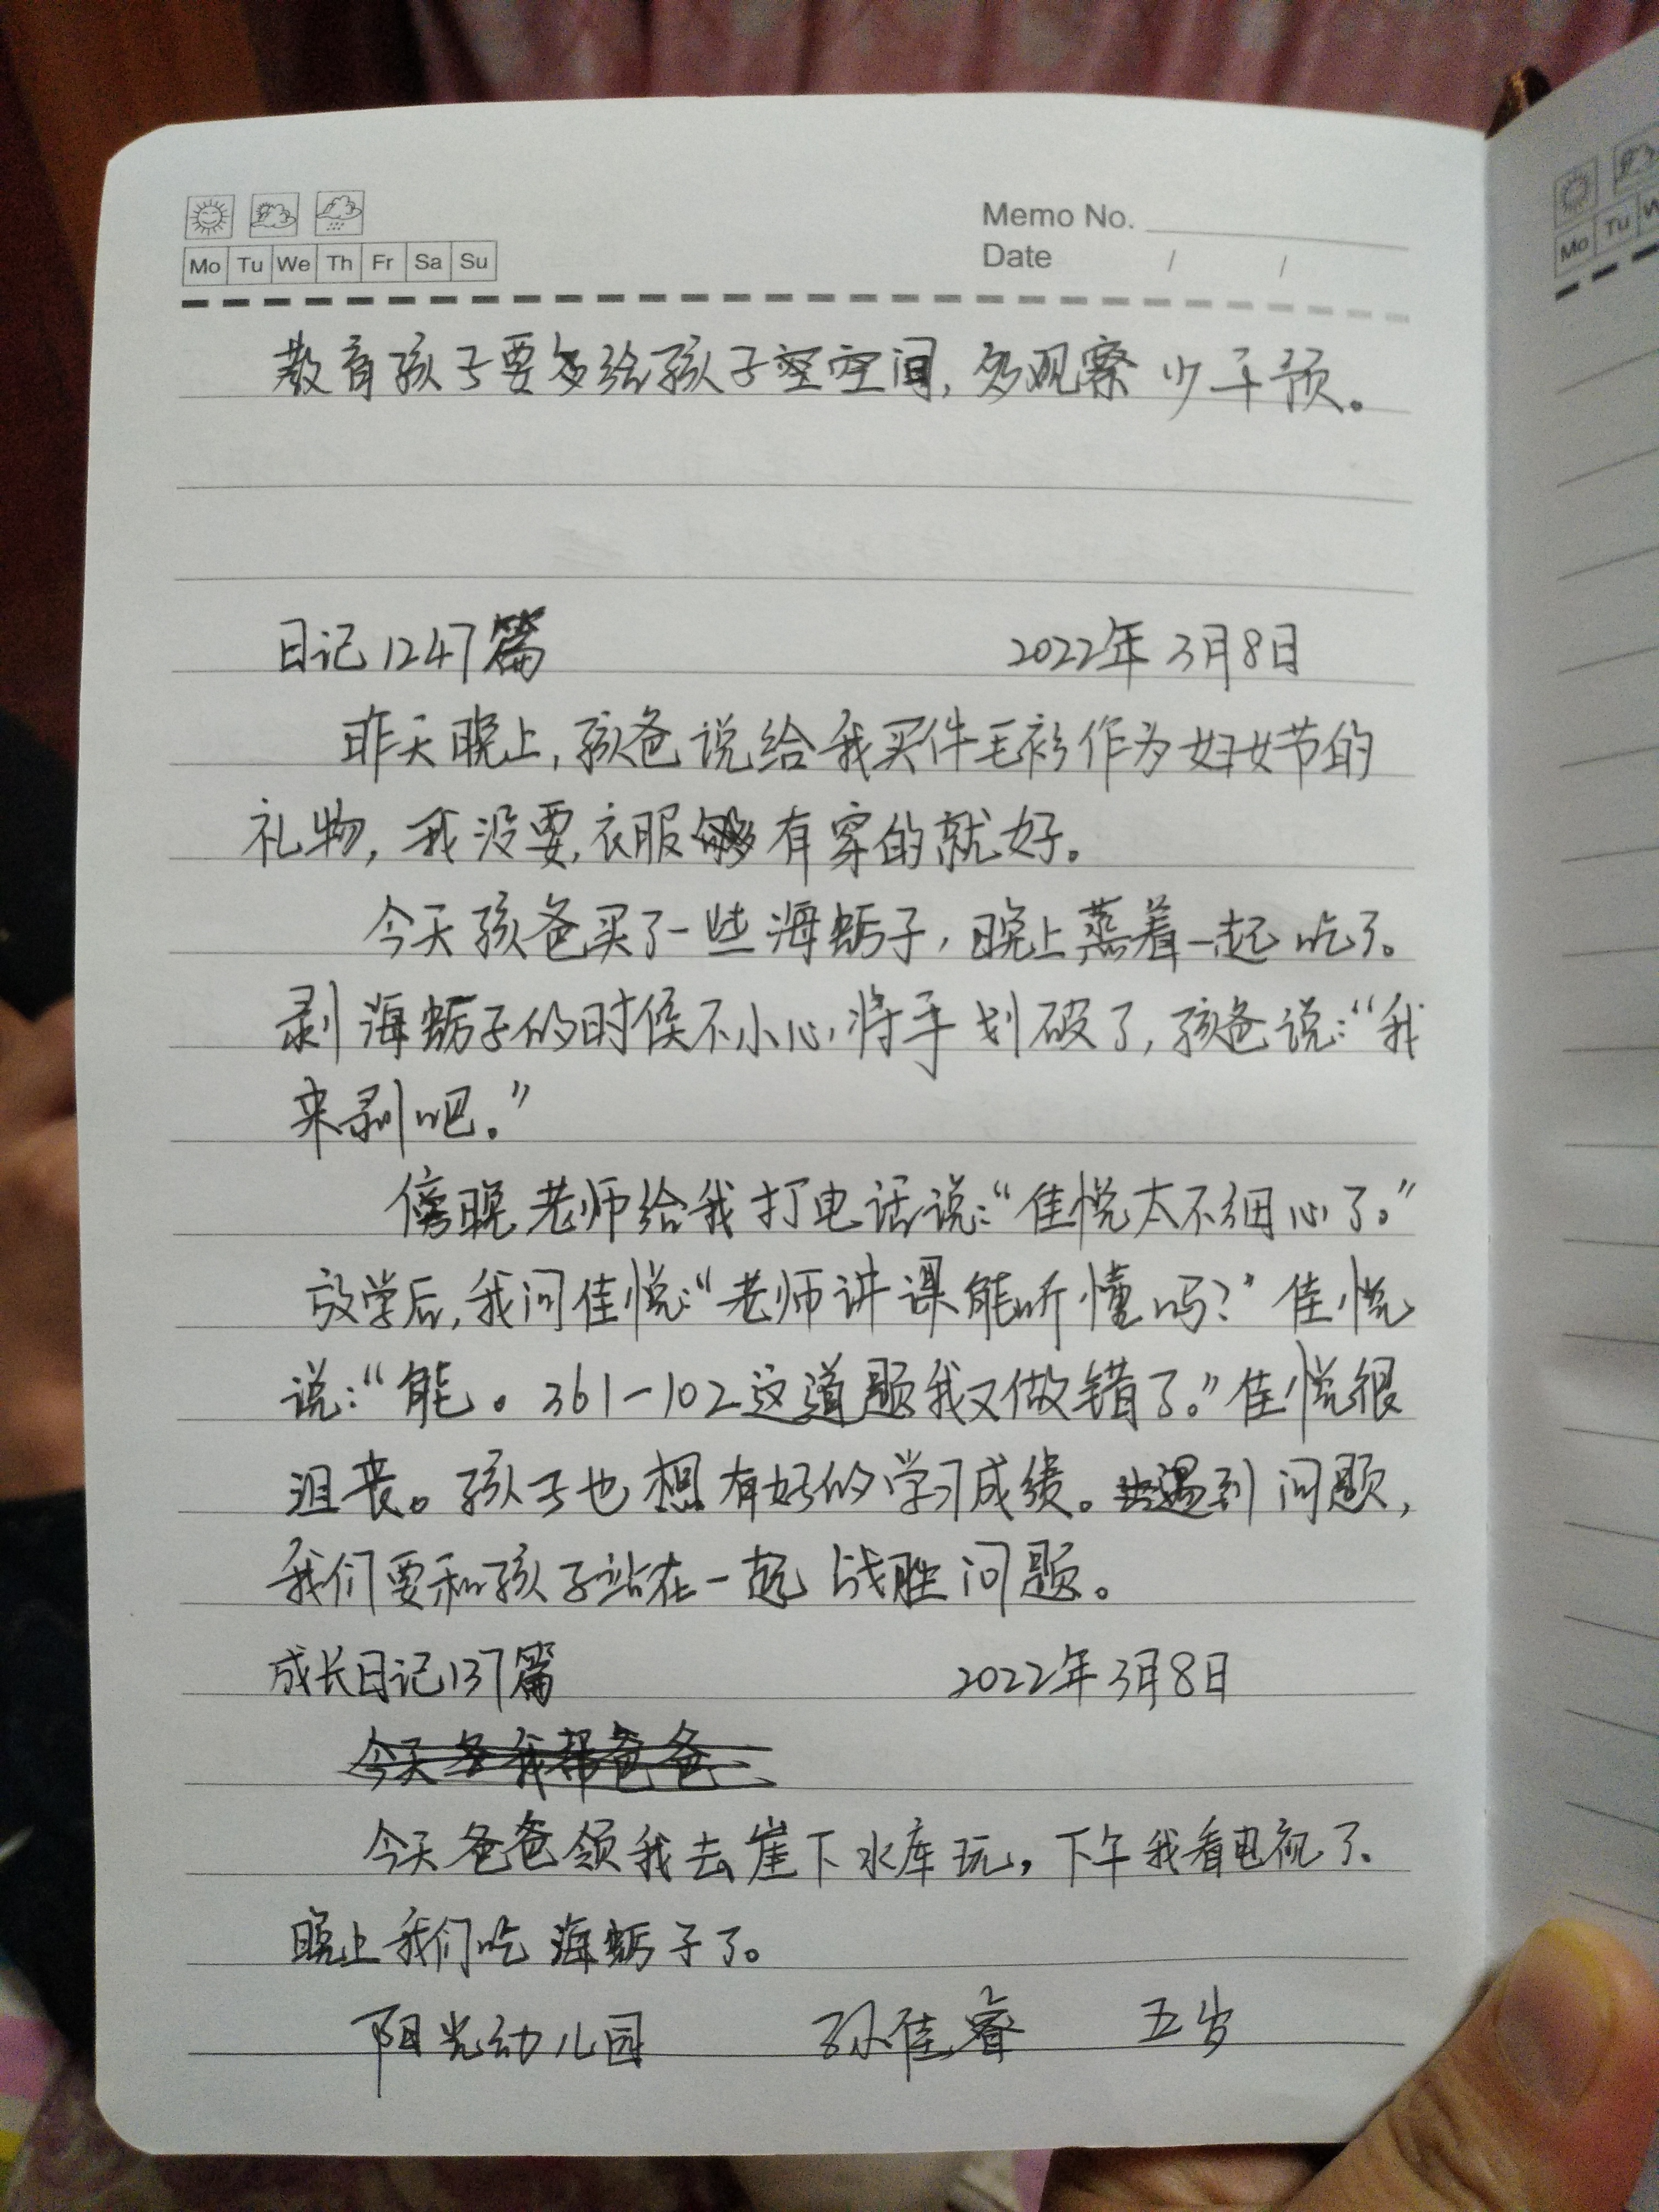 Memo No.
Mo Tu We Th Fr Sa Su
Date / /
教育孩子要多给孩子空空间,多观察少干预。
日记1247篇 2022年3月8日
昨天晚上,孩爸说给我买件毛衫作为妇女节的
礼物,我没要,衣服够有穿的就好。
今天孩爸买了一些海蛎子,晚上蒸着一起吃了。
剥海蛎子的时候不小心将手划破了,孩爸说:“我
来剥吧。”
傍晚老师给我打电话说:“佳悦太不细心了。”
放学后,我问佳悦:“老师讲课能听懂吗?”佳悦
说:“能。361-102这道题我又做错了。”佳悦很
沮丧。孩子也想有好的学习成绩。遇到问题,
我们要和孩子站在一起战胜问题。
成长日记137篇 2022年3月8日
今天 我帮爸爸
今天爸爸领我去崖下水库玩,下午我看电视了、
晚上我们吃海蛎子了。
阳光幼儿园 孙佳睿 五岁
Mo Tu